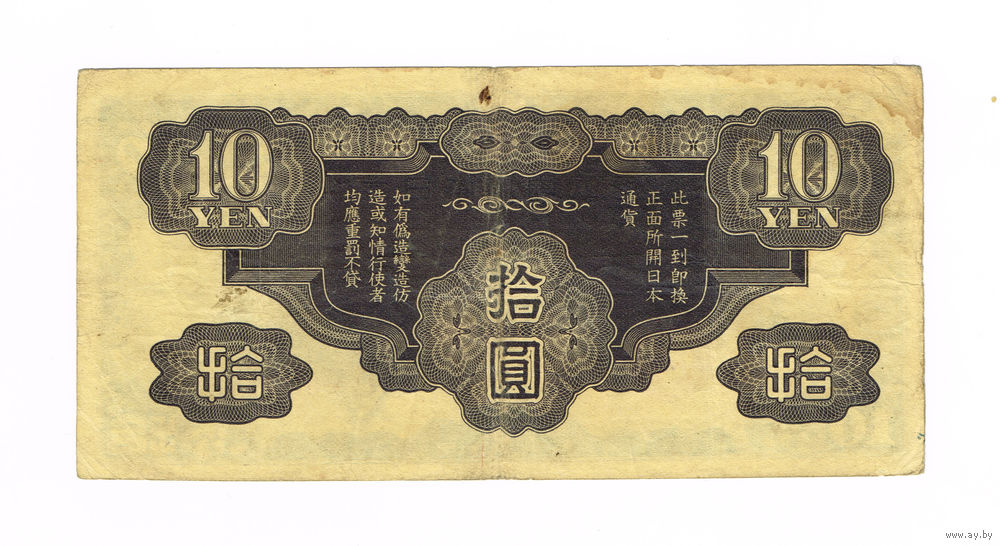 10
YEN
10
YEN
此票一到卽換
正面所開日本
通貨
如有僞造變造仿
造或知情行使者
均應重罰不貸
拾
圓
拾
拾
www.ay.by